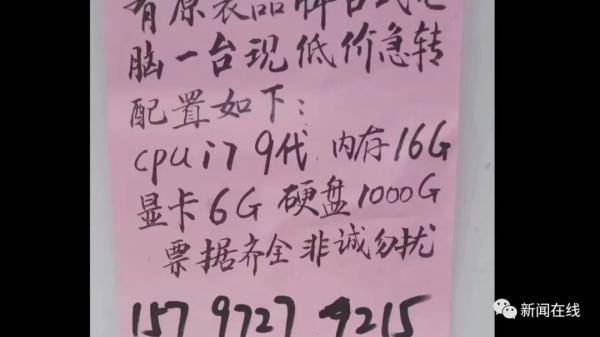 有原装品牌台式电
脑一台现低价急转
配置如下:
cpu i7 9代 内存16G
显卡6G 硬盘1000G
票据齐全 非诚勿扰
157 9727 9215
新闻在线